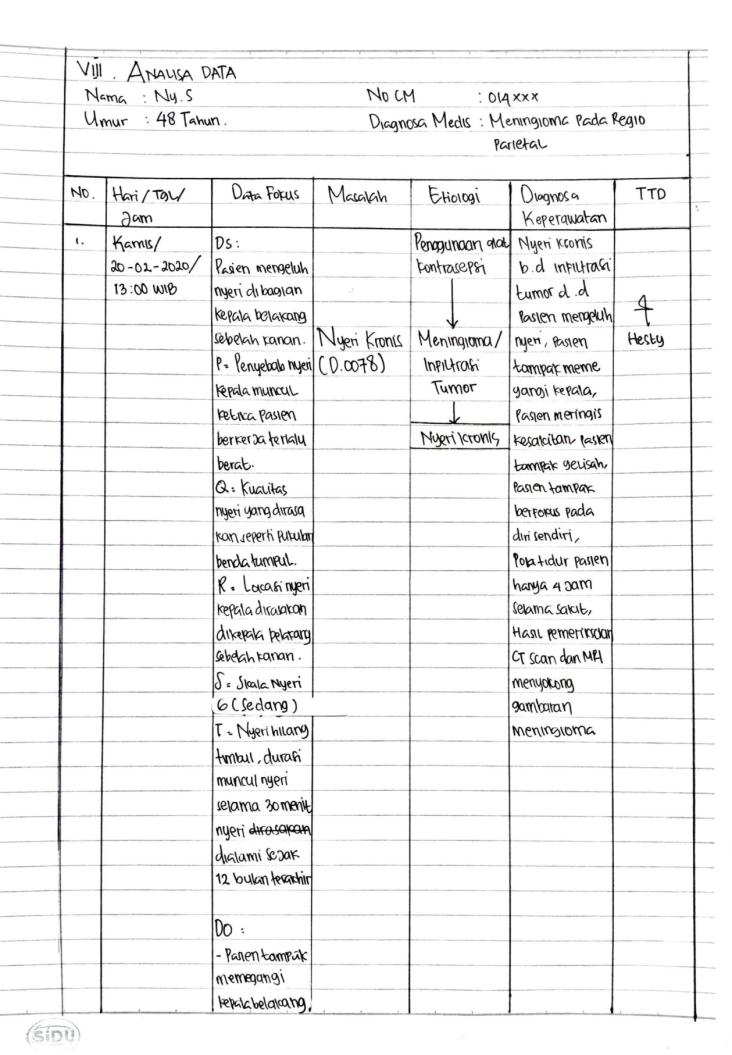 VIII. ANALISA DATA
Nama : Ny. S
No CM : 014xxx
Umur : 48 Tahun.
Diagnosa Medis : Meningioma Pada Regio
Parietal
NO.
Hari / Tgl/
Jam
Data Fokus
Masalah
Etiologi
Diagnosa
Keperawatan
TTD
1.
Kamis/
20-02-2020/
13:00 WIB
DS :
Pasien mengeluh
nyeri di bagian
kepala belakang
sebelah kanan.
P = Penyebab nyeri
kepala muncul
ketika pasien
berkerja terlalu
berat.
Q = Kualitas
nyeri yang dirasa
kan seperti pukulan
benda tumpul.
R = Lokasi nyeri
kepala dirasakan
dikepala belakang
sebelah kanan.
S = Skala Nyeri
6 (Sedang)
T = Nyeri hilang
timbul, durasi
muncul nyeri
selama 30 menit
nyeri dirasakan
dialami sejak
12 bulan terakhir
DO :
- Pasien tampak
memegangi
kepala belakang.
Nyeri Kronis
(D.0078)
Penggunaan alat
kontrasepsi
Meningioma/
Infiltrasi
Tumor
Nyeri kronis
Nyeri kronis
b.d infiltrasi
tumor d.d
Pasien mengeluh
nyeri, pasien
tampak meme
gangi kepala,
Pasien meringis
kesakitan, pasien
tampak gelisah,
Pasien tampak
berfokus pada
diri sendiri,
Pola tidur pasien
hanya 4 jam
selama sakit,
Hasil pemeriksaan
CT scan dan MRI
menyokong
gambaran
meningioma
Hesty
SiDU